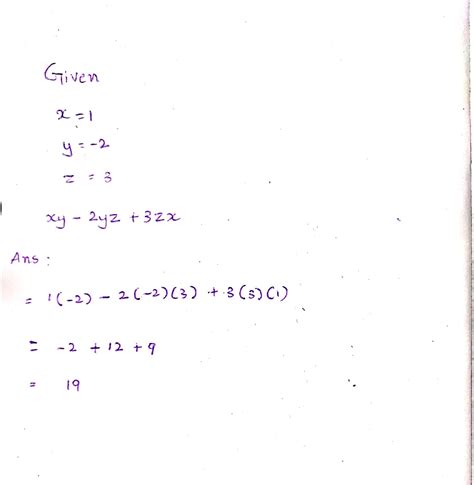 Given
x = 1
y = -2
z = 3
xy - 2yz + 3zx
Ans :
= 1(-2) - 2(-2)(3) + 3(3)(1)
= -2 + 12 + 9
= 19